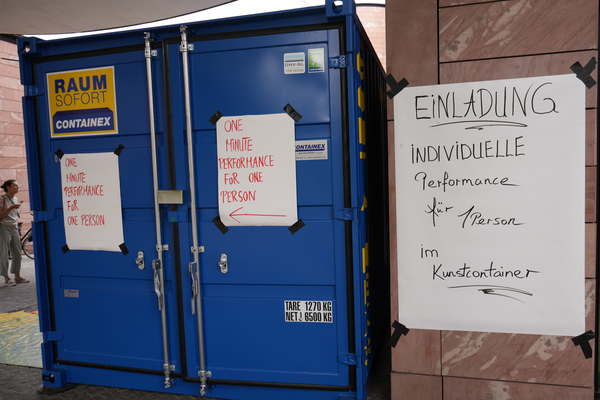 RAUM
SOFORT
CONTAINEX
ONE
MINUTE
PERFORMANCE
FOR
ONE PERSON
ONE
MINUTE
PERFORMANCE
FOR ONE
PERSON
CONTAINEX
TARE 1270 KG
NET 6500 KG
EINLADUNG
INDIVIDUELLE
Performance
für 1 Person
im
Kunstcontainer